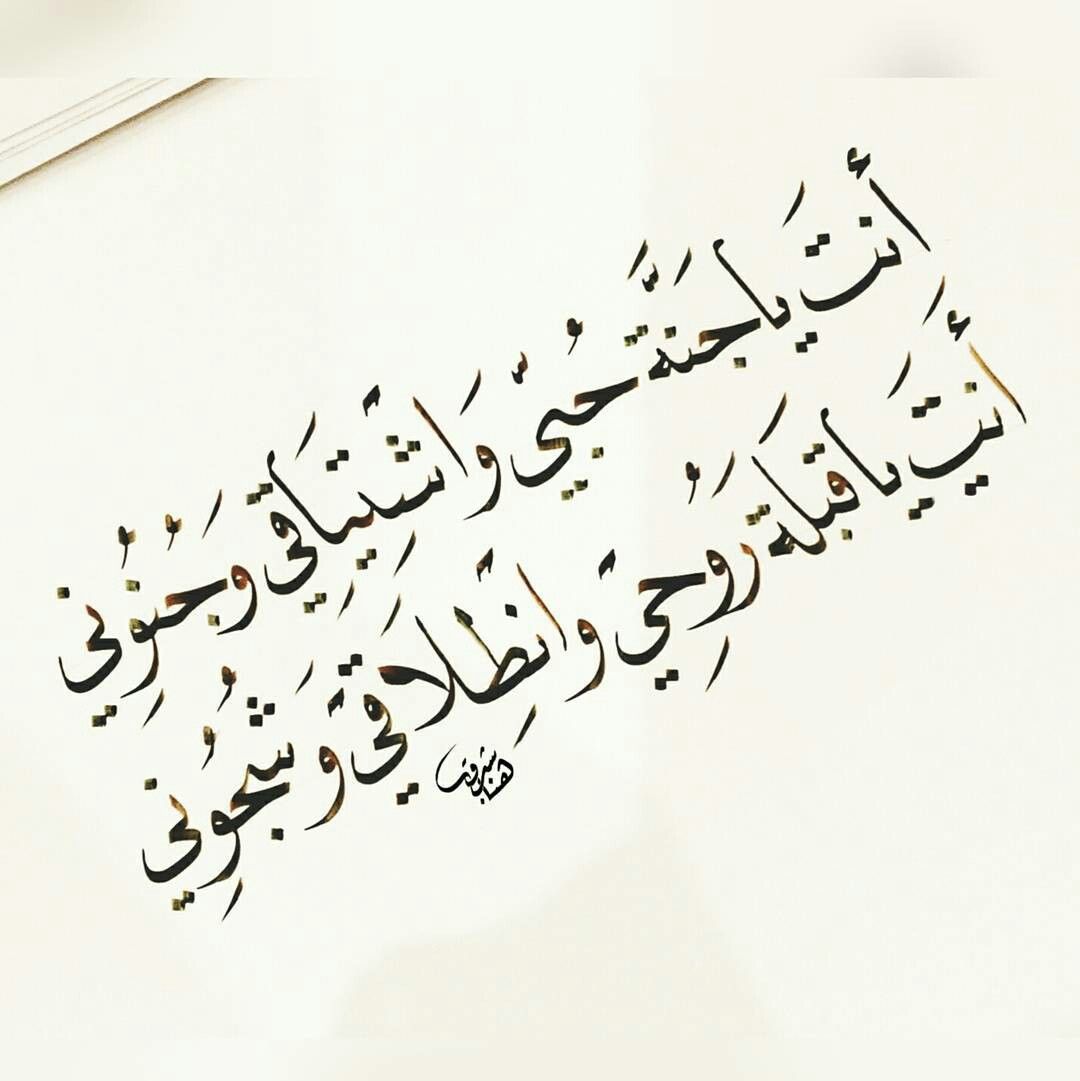 أنتَ يا جنَّةَ حُبّي وَاشْتيَاقي وَجُنُوني
أَنتَ يا قبلَةَ رُوحي وَانْطِلَاقي وَشُجُوني